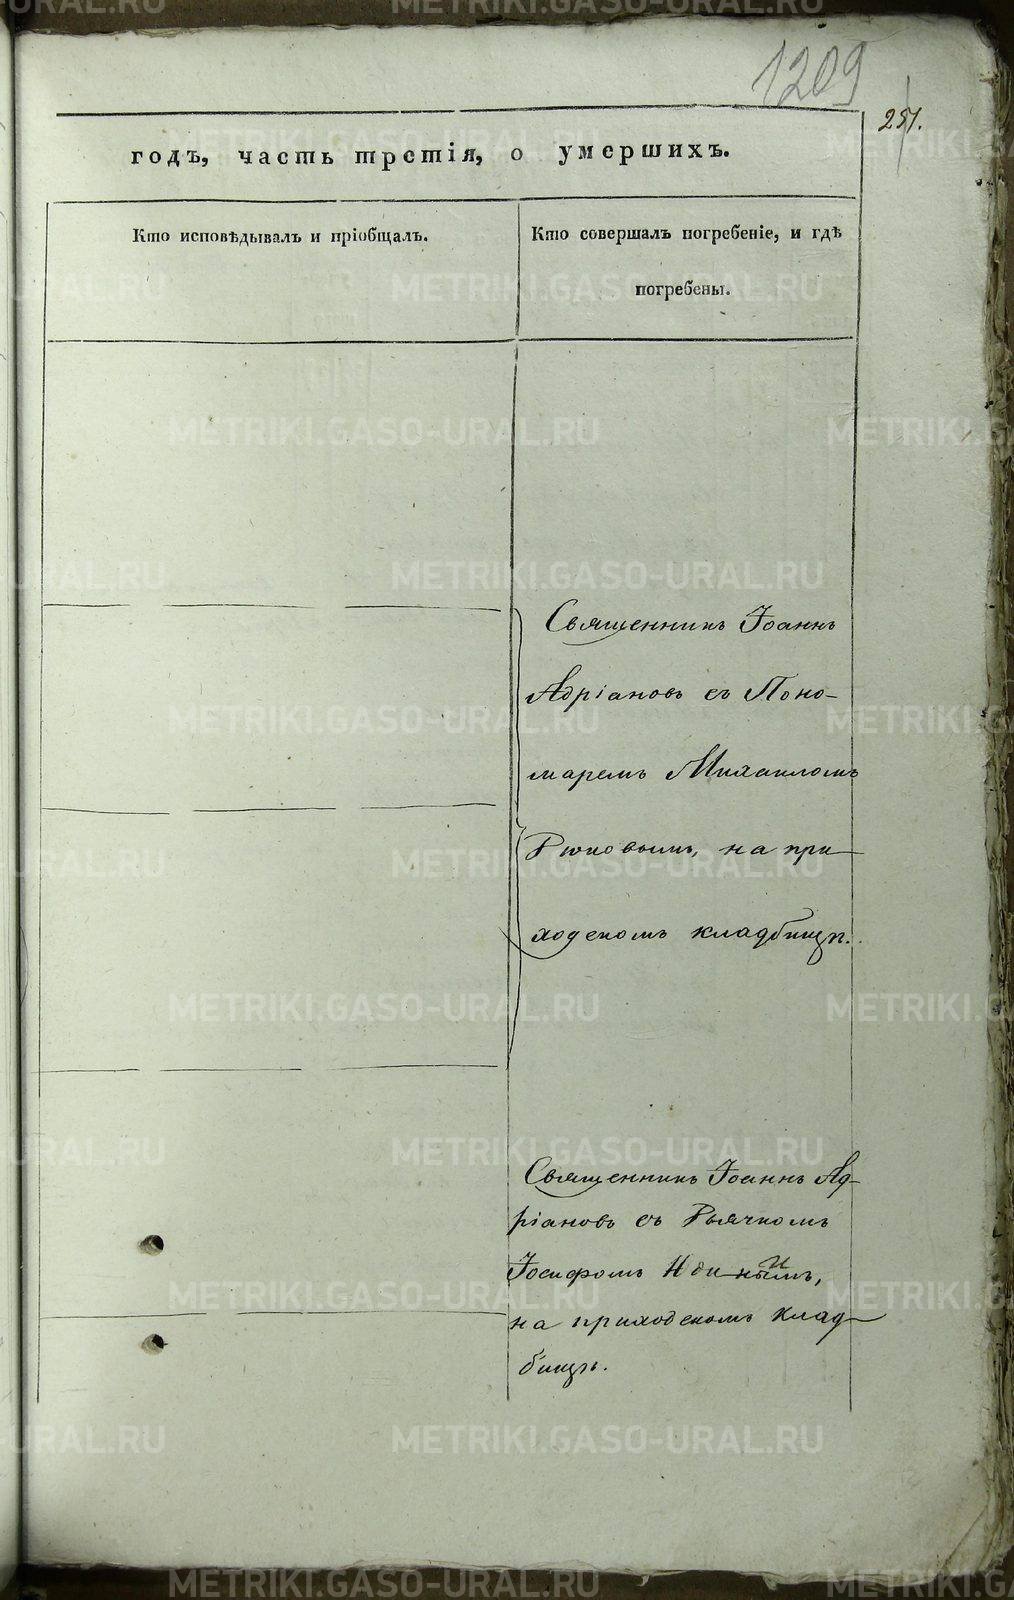 1209
251.
годъ, часть третія, о умершихъ.
Кто исповѣдывалъ и пріобщалъ.
Кто совершалъ погребеніе, и гдѣ
погребены.
Священникъ Іоаннъ
Адріановъ съ Поно-
маремъ Михаиломъ
на при-
ходскомъ кладбищѣ.
Священникъ Іоаннъ Ад-
ріановъ съ Дьячкомъ
Іосифомъ
на приходскомъ клад-
бищѣ.
METRIKI.GASO-URAL.RU